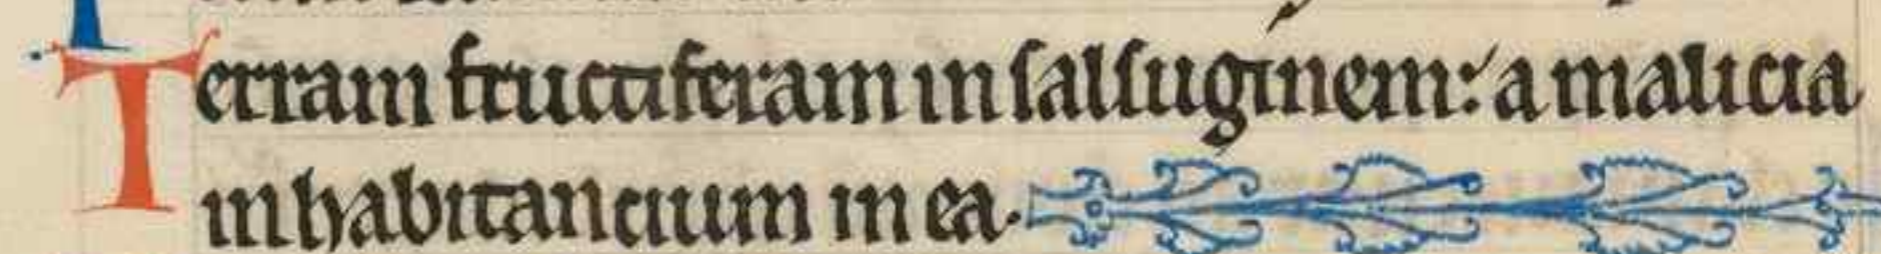 Terram fructiferam in salsuginem: a malicia
inhabitancium in ea.